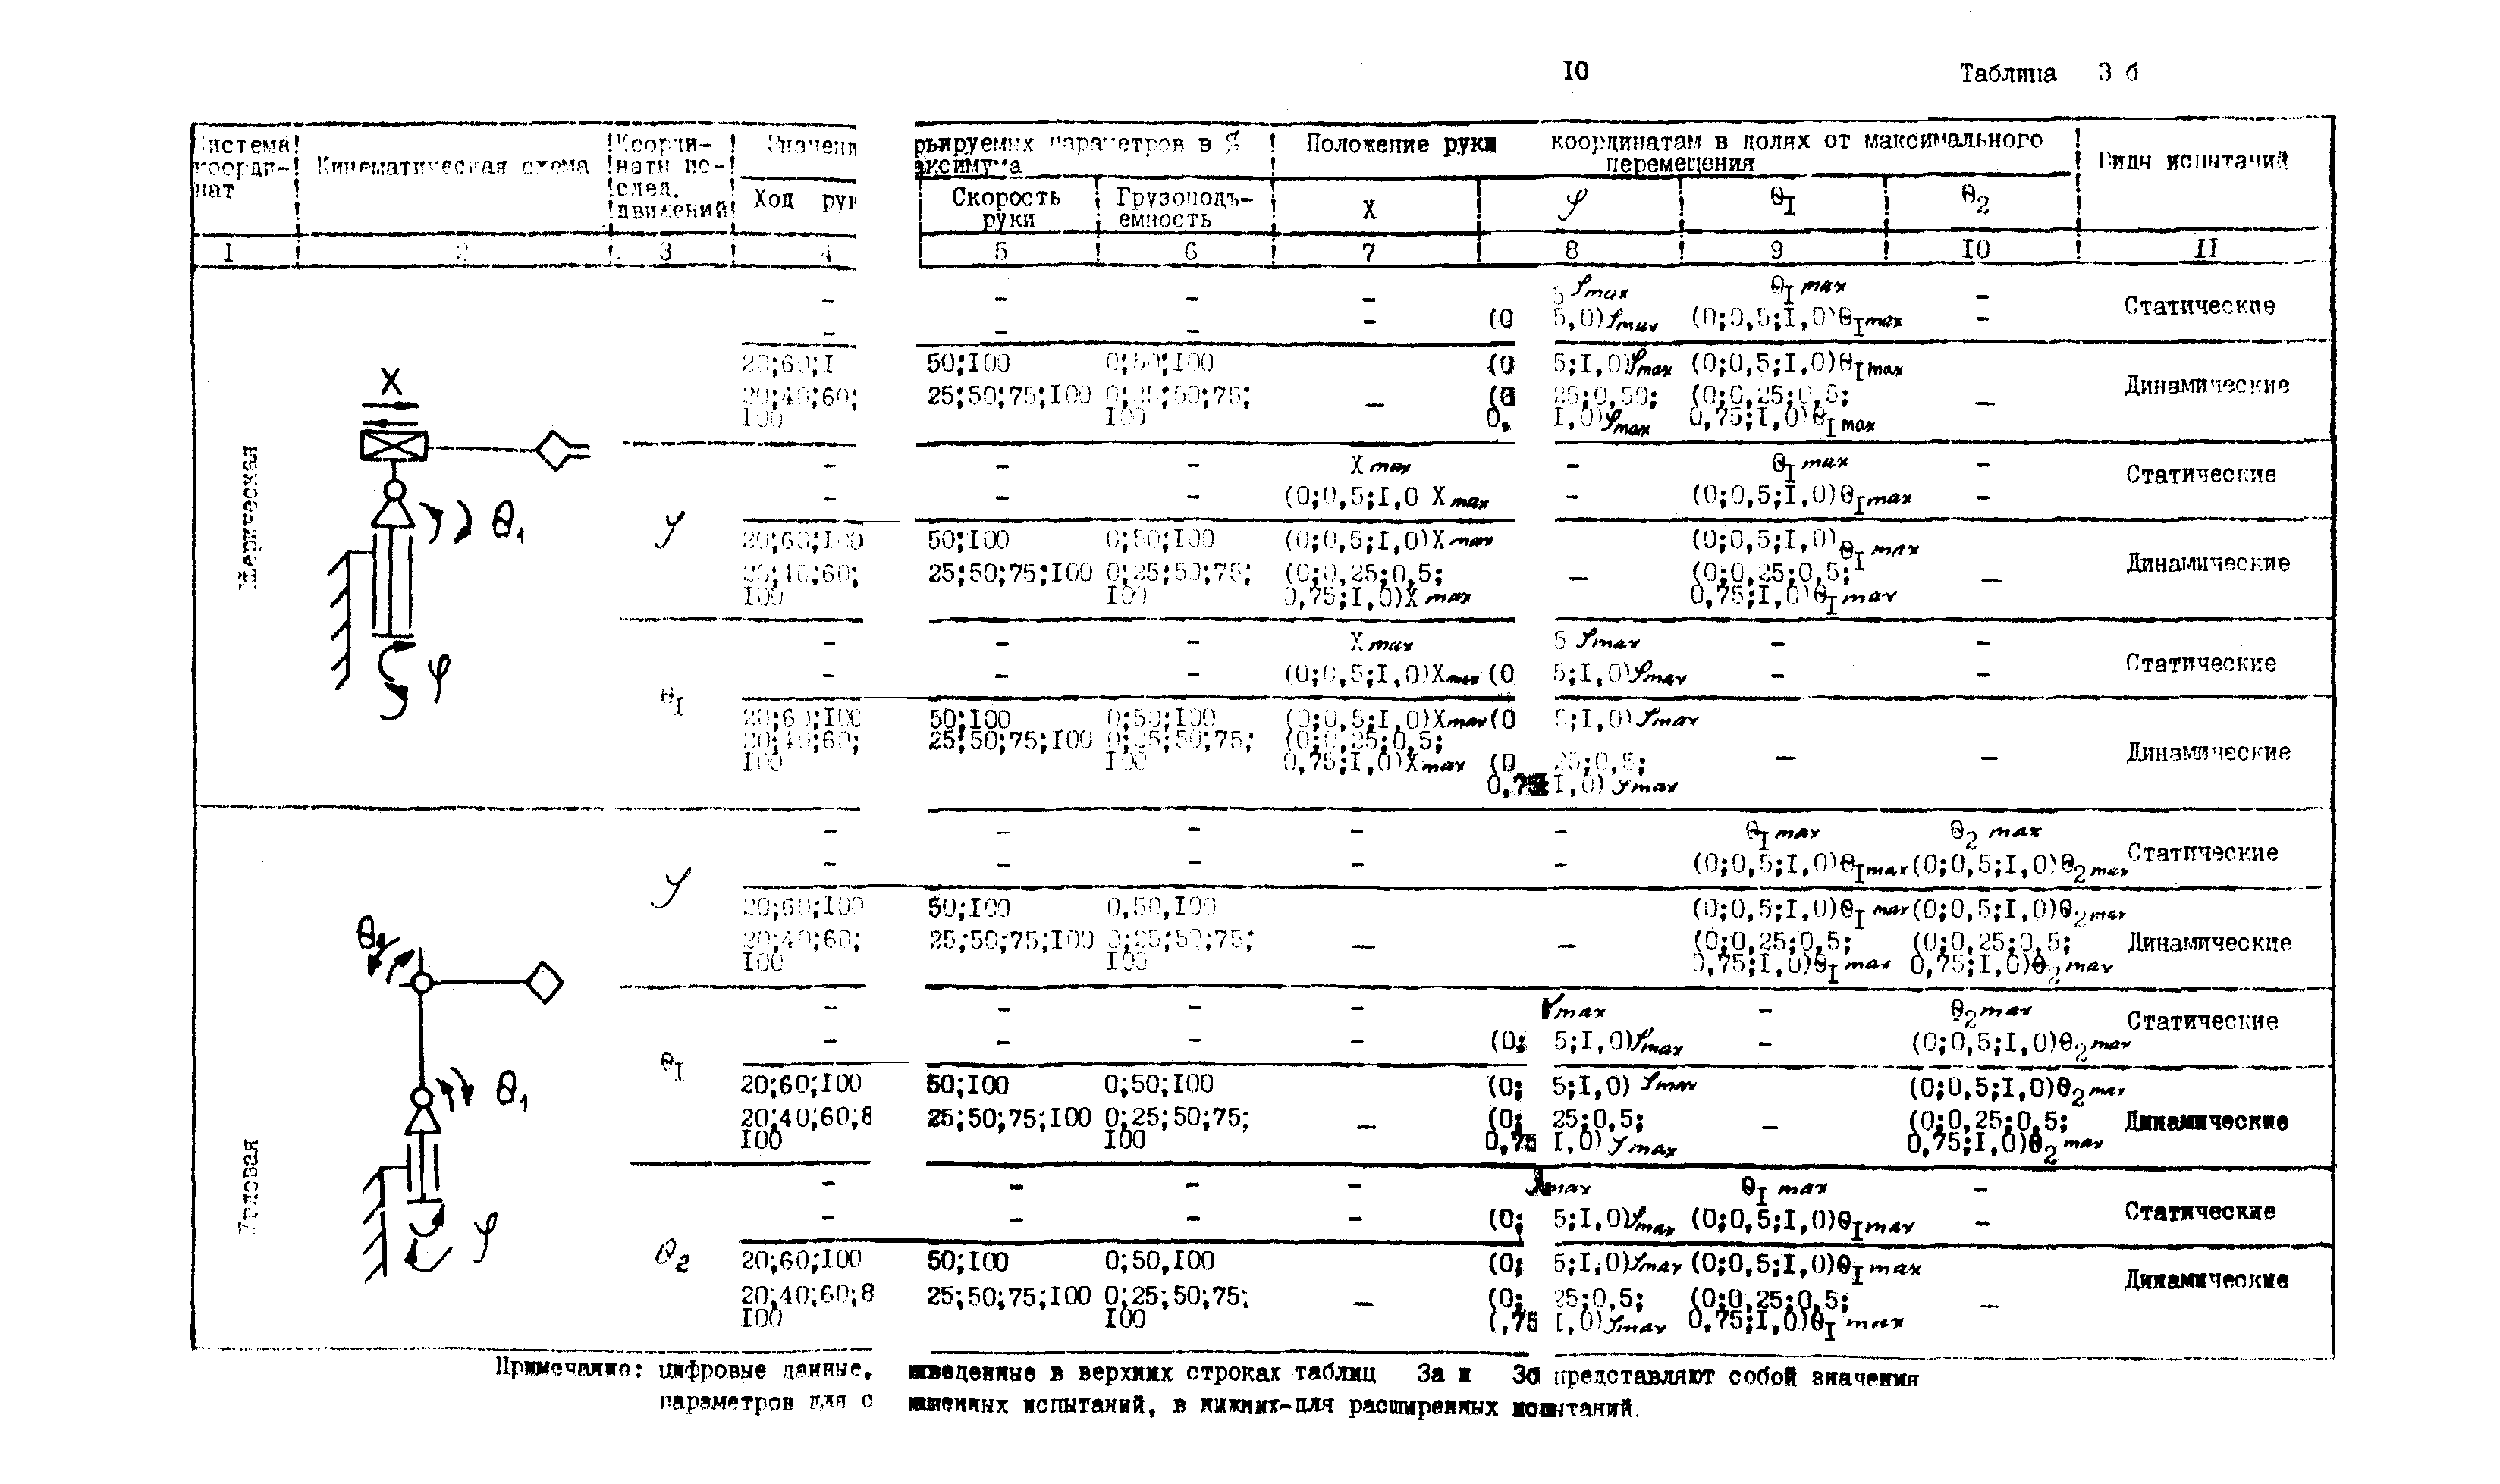 10
Таблица 3 б
истема коорди- нат
Кинематическая схема
Коорди- наты ис- след. движений
Значени
рьируемых параметров в % аксимума
Положение руки координатам в долях от максимального перемещения
Виды испытаний
Ход рук
Скорость руки
Грузоподъ- емность
X
φ
θI
θ2
I 2 3 4 5 6 7 8 9 I0 II
- - - - 5 φmax θI max - Статические
- - - - (0 5,0)φmax (0;0,5;I,0)θI max -
20;60;I 50;I00 0;50;I00 (0 5;I,0)φmax (0;0,5;I,0)θI max
20;40;60; 25;50;75;I00 0;25;50;75; – (0 25;0,50; (0;0,25;0,5; – Динамические
I00 I00 0, I,0)φmax 0,75;I,0)θI max
X
θ1
φ
Сферическая
φ
- - - X max - θI max - Статические
- - - (0;0,5;I,0 X max - (0;0,5;I,0)θI max -
20;60;I00 50;I00 0;50;I00 (0;0,5;I,0)X max (0;0,5;I,0)θI max
20;40;60; 25;50;75;I00 0;25;50;75; (0;0,25;0,5; – (0;0,25;0,5; – Динамические
I00 I00 0,75;I,0)X max 0,75;I,0)θI max
θI
- - - X max 5 φmax - - Статические
- - - (0;0,5;I,0)Xmax (0 5;I,0)φmax - -
20;60;I00 50;I00 0;50;I00 (0;0,5;I,0)Xmax (0 5;I,0)φmax
20;40;60; 25;50;75;I00 0;25;50;75; (0;0,25;0,5; Динамические
I00 I00 0,75;I,0)Xmax (0 25;0,5; – –
0,75 I,0) φmax
φ
- - - - - θI max θ2 max Статические
- - - - - (0;0,5;I,0)θI max (0;0,5;I,0)θ2 max
20;60;I00 50;I00 0,50,I00 (0;0,5;I,0)θI max (0;0,5;I,0)θ2 max
20;40;60; 25;50;75;I00 0;25;50;75; – – (0;0,25;0,5; (0;0,25;0,5; Динамические
I00 I00 0,75;I,0)θI max 0,75;I,0)θ2 max
θ1
φ
Угловая
θI
- - - - φmax - θ2 max Статические
- - - - (0; 5;I,0)φmax - (0;0,5;I,0)θ2 max
20;60;I00 50;I00 0;50;I00 (0; 5;I,0) φmax (0;0,5;I,0)θ2 max
20;40;60;8 25;50;75;I00 0;25;50;75; – (0; 25;0,5; – (0;0,25;0,5; Динамические
I00 I00 0,75 I,0) φmax 0,75;I,0)θ2 max
θ2
- - - - max θI max - Статические
- - - - (0; 5;I,0)φmax (0;0,5;I,0)θI max -
20;60;I00 50;I00 0;50,I00 (0; 5;I,0)φmax (0;0,5;I,0)θI max
20;40;60;8 25;50;75;I00 0;25;50;75; – (0; 25;0,5; (0;0,25;0,5; – Динамические
I00 I00 ,75 I,0)φmax 0,75;I,0)θI max
Примечание: цифровые данные, иведенные в верхних строках таблиц 3а и 3б представляют собой значения
параметров для с ращенных испытаний, в нижних-для расширенных испытаний.